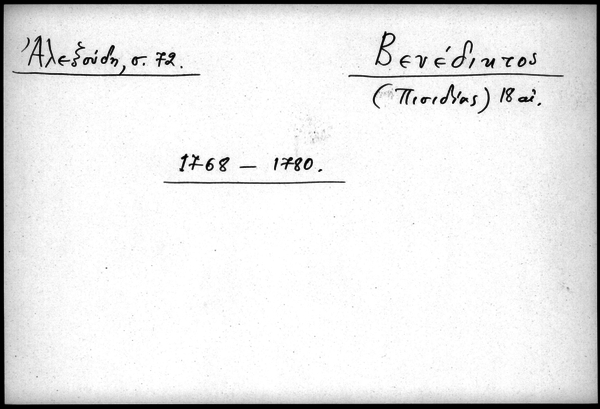 Ἀλεξούδη, σ. 72.
Βενέδικτος
(Πισιδίας) 18 αἰ.
1768 – 1780.